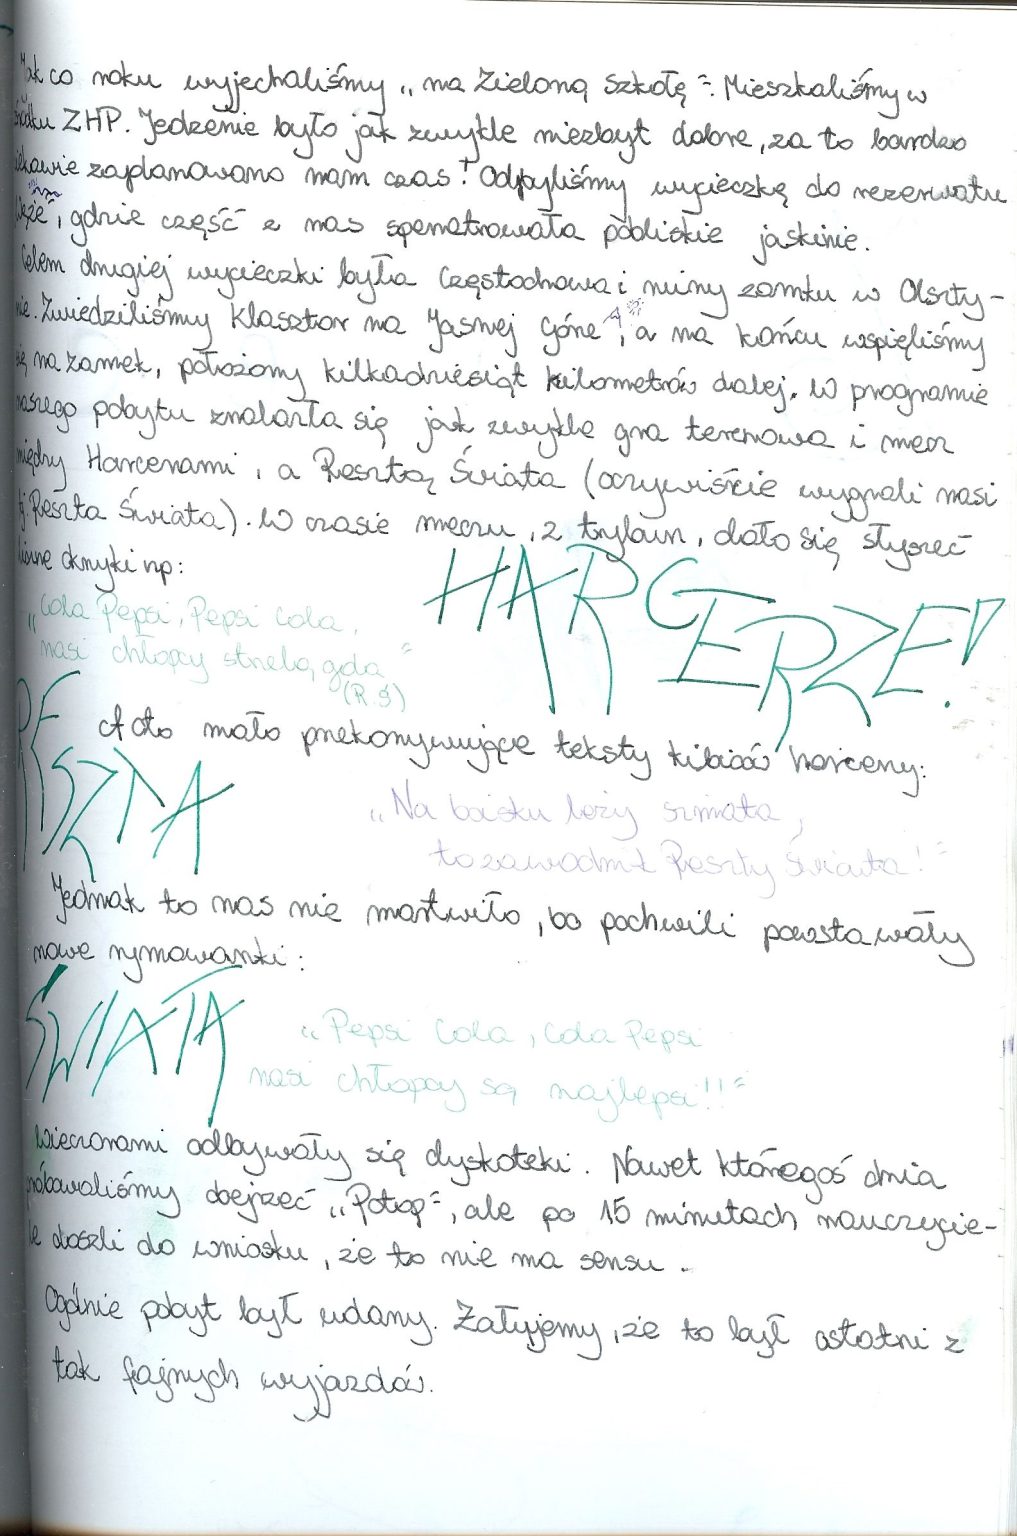 Jak co roku wyjechaliśmy „na Zieloną Szkołę”. Mieszkaliśmy w
ośrodku ZHP. Jedzenie było jak zwykle niezbyt dobre, za to bardzo
ciekawie zaplanowano nam czas! Odbyliśmy wycieczkę do rezerwatu
gdzie część z nas spenetrowała pobliskie jaskinie.
Celem drugiej wycieczki była Częstochowa i ruiny zamku w Olszty-
nie. Zwiedziliśmy Klasztor na Jasnej Górze, a na końcu wspięliśmy
się na zamek, położony kilkadziesiąt kilometrów dalej. W programie
naszego pobytu znalazła się jak zwykle gra terenowa i mecz
między Harcerzami, a Resztą Świata (oczywiście wygrali nasi
tj. Reszta Świata). W czasie meczu, z trybun, dało się słyszeć
okrzyki np:
HARCERZE!
„Cola Pepsi, Pepsi Cola,
nasi chłopcy strzelą gola”
(R.Ś)
RESZTA
A oto mało przekonywujące teksty kibiców harcerzy:
„Na boisku leży szmata,
to zawodnik Reszty Świata!”
Jednak to nas nie martwiło, bo po chwili powstawały
nowe rymowanki:
ŚWIATA
„Pepsi Cola, Cola Pepsi
nasi chłopcy są najlepsi!!”
Wieczorami odbywały się dyskoteki. Nawet któregoś dnia
próbowaliśmy obejrzeć „Potop”, ale po 15 minutach nauczycie-
le doszli do wniosku, że to nie ma sensu.
Ogólnie pobyt był udany. Żałujemy, że to był ostatni z
tak fajnych wyjazdów.